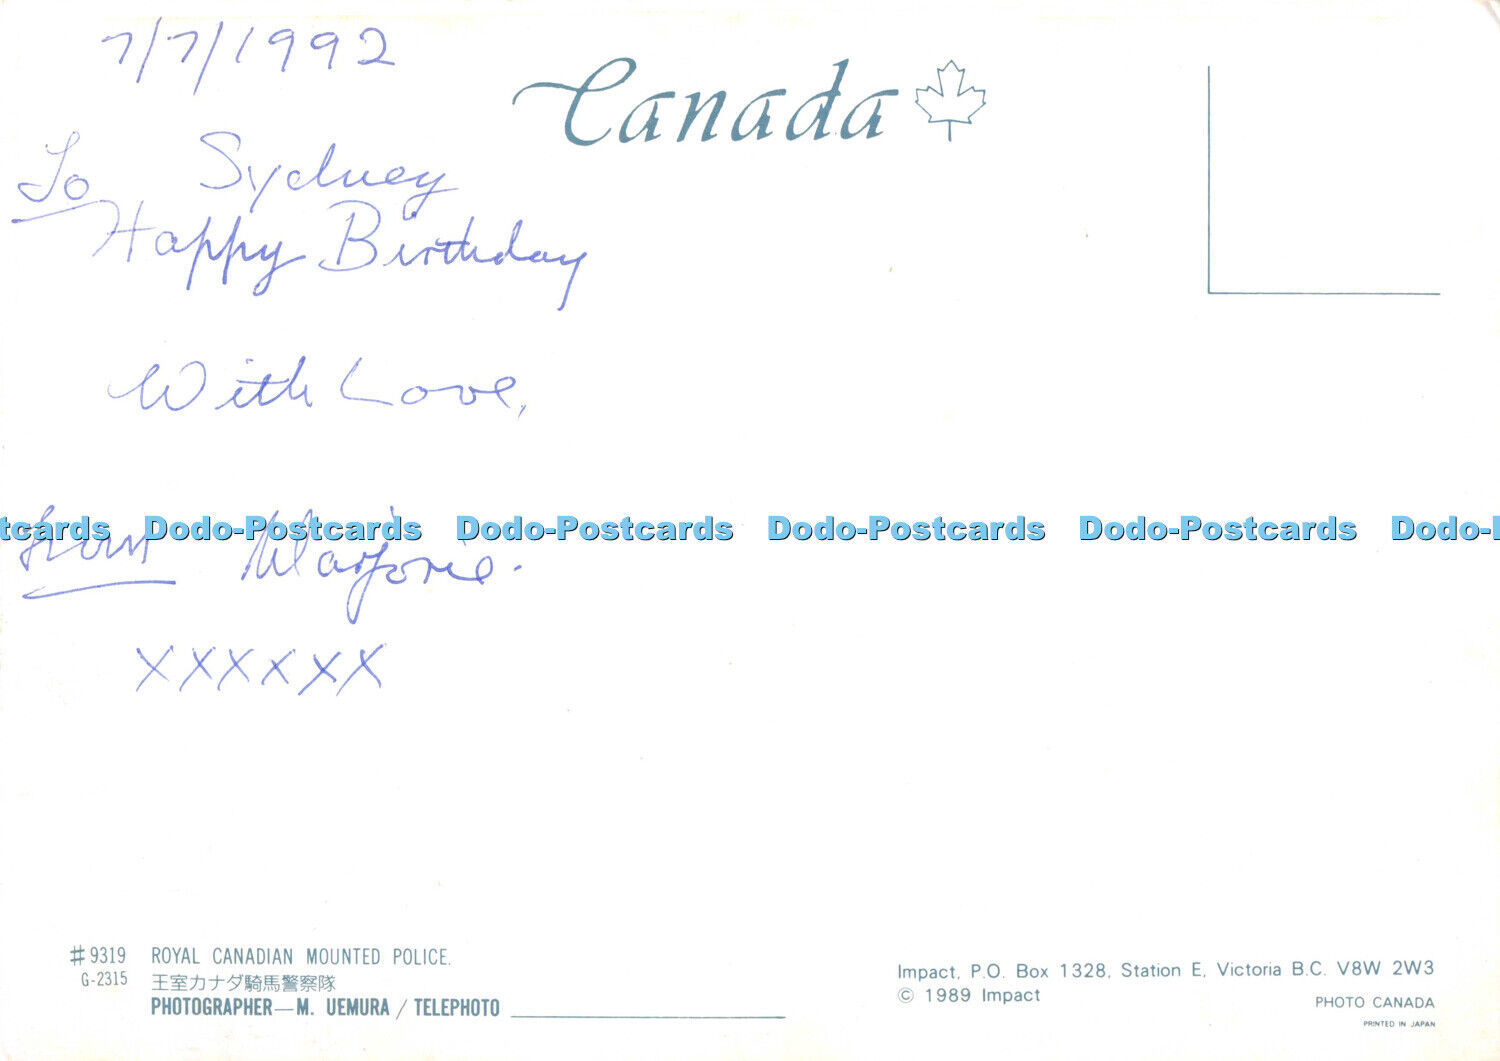 7/7/1992
Canada
To Sydney
Happy Birthday
With Love,
tcards Dodo-Postcards Dodo-Postcards Dodo-Postcards Dodo-Postcards Dodo-P
from Marjorie.
XXXXXX
#9319 ROYAL CANADIAN MOUNTED POLICE.
G-2315 王室カナダ騎馬警察隊
PHOTOGRAPHER—M. UEMURA / TELEPHOTO
Impact, P.O. Box 1328, Station E, Victoria B.C. V8W 2W3
© 1989 Impact
PHOTO CANADA
PRINTED IN JAPAN